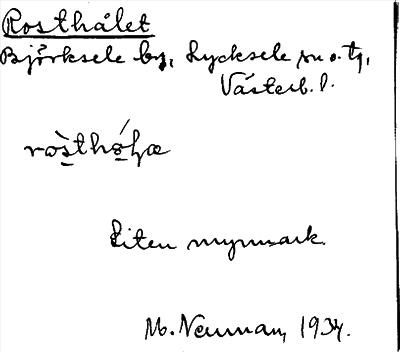 Rosthålet
Björksele by, Lycksele sn o. tg,
Västerb. l.
Liten myrmark.
M. Neuman, 1934.